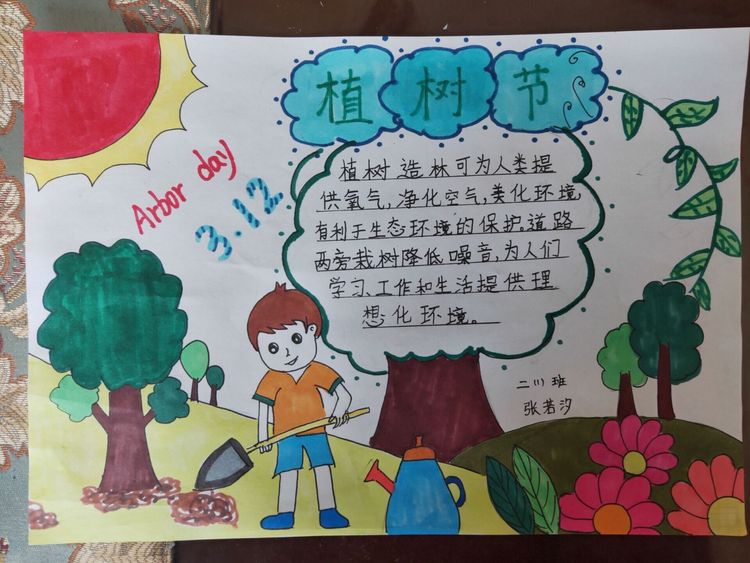 植树节
Arbor day
3.12
植树造林可为人类提
供氧气,净化空气,美化环境,
有利于生态环境的保护。道路
两旁栽树降低噪音,为人们
学习、工作和生活提供理
想化环境。
二川班
张若汐